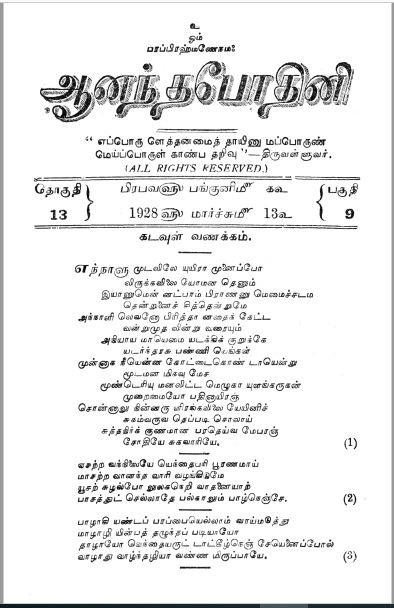 உ
ஓம்
பரப்பிரஹ்மணேநமஃ
ஆனந்தபோதினி
“ எப்பொரு ளெத்தன்மைத் தாயினு மப்பொருண்
மெய்ப்பொருள் காண்ப தறிவு ”—திருவள்ளுவர்.
(ALL RIGHTS RESERVED.)
தொகுதி பிரபவ௵ பங்குனி௴ ௧௨ பகுதி
13 1928௵ மார்ச்சு௴ 13௨ 9
கடவுள் வணக்கம்.
எந்நாளு முடலிலே யுயிரா முனைப்போ
லிருக்கவிலை யோமன தெனும்
இயானுமென் னட்பாம் பிராணனு மெமைச்சடம
தென்றுனைச் சித்தென்றுமே
அந்நாளி லெவனோ பிரித்தா னதைக் கேட்ட
வன்றுமுத லின்று வரையும்
அநியாய மாயெமை யடக்கிக் குறுக்கே
யடர்ந்தரசு பண்ணி யெங்கள்
முன்னாக நீயென்ன கோட்டைகொண் டாயென்று
மூடமன மிகவு மேச
மூண்டெரியு மனலிட்ட மெழுகா யுளங்கருகன்
முறைமையோ பதினாயிரஞ்
சொன்னாலு நின்னரு ளிரங்கவிலை யேயினிச்
சுகம்வருவ தெப்படி சொலாய்
சுத்தநிர்க் குணமான பரதெய்வ மேபரஞ்
சோதியே சுகவாரியே. (1)
ஏசற்ற வந்நிலையே யெந்தைபரி பூரணமாய்
மாசற்ற வானந்த வாரி வழங்கிடுமே
யூசற் சுழல்போ லுலகநெறி வாதனையாற்
பாசத்துட் செல்லாதே பல்காலும் பாழ்நெஞ்சே. (2)
பாழாகி யண்டப் பரப்பையெலாம் வாய்மடுத்து
மாழாழி யின்பத் தழுந்தப் படியாயோ
தாழாயோ வெந்தையருட் டாட்கீழ்நெஞ் சேயெனைப்போல்
வாழாது வாழ்ந்தழியா வண்ண மிருப்பாயே. (3)